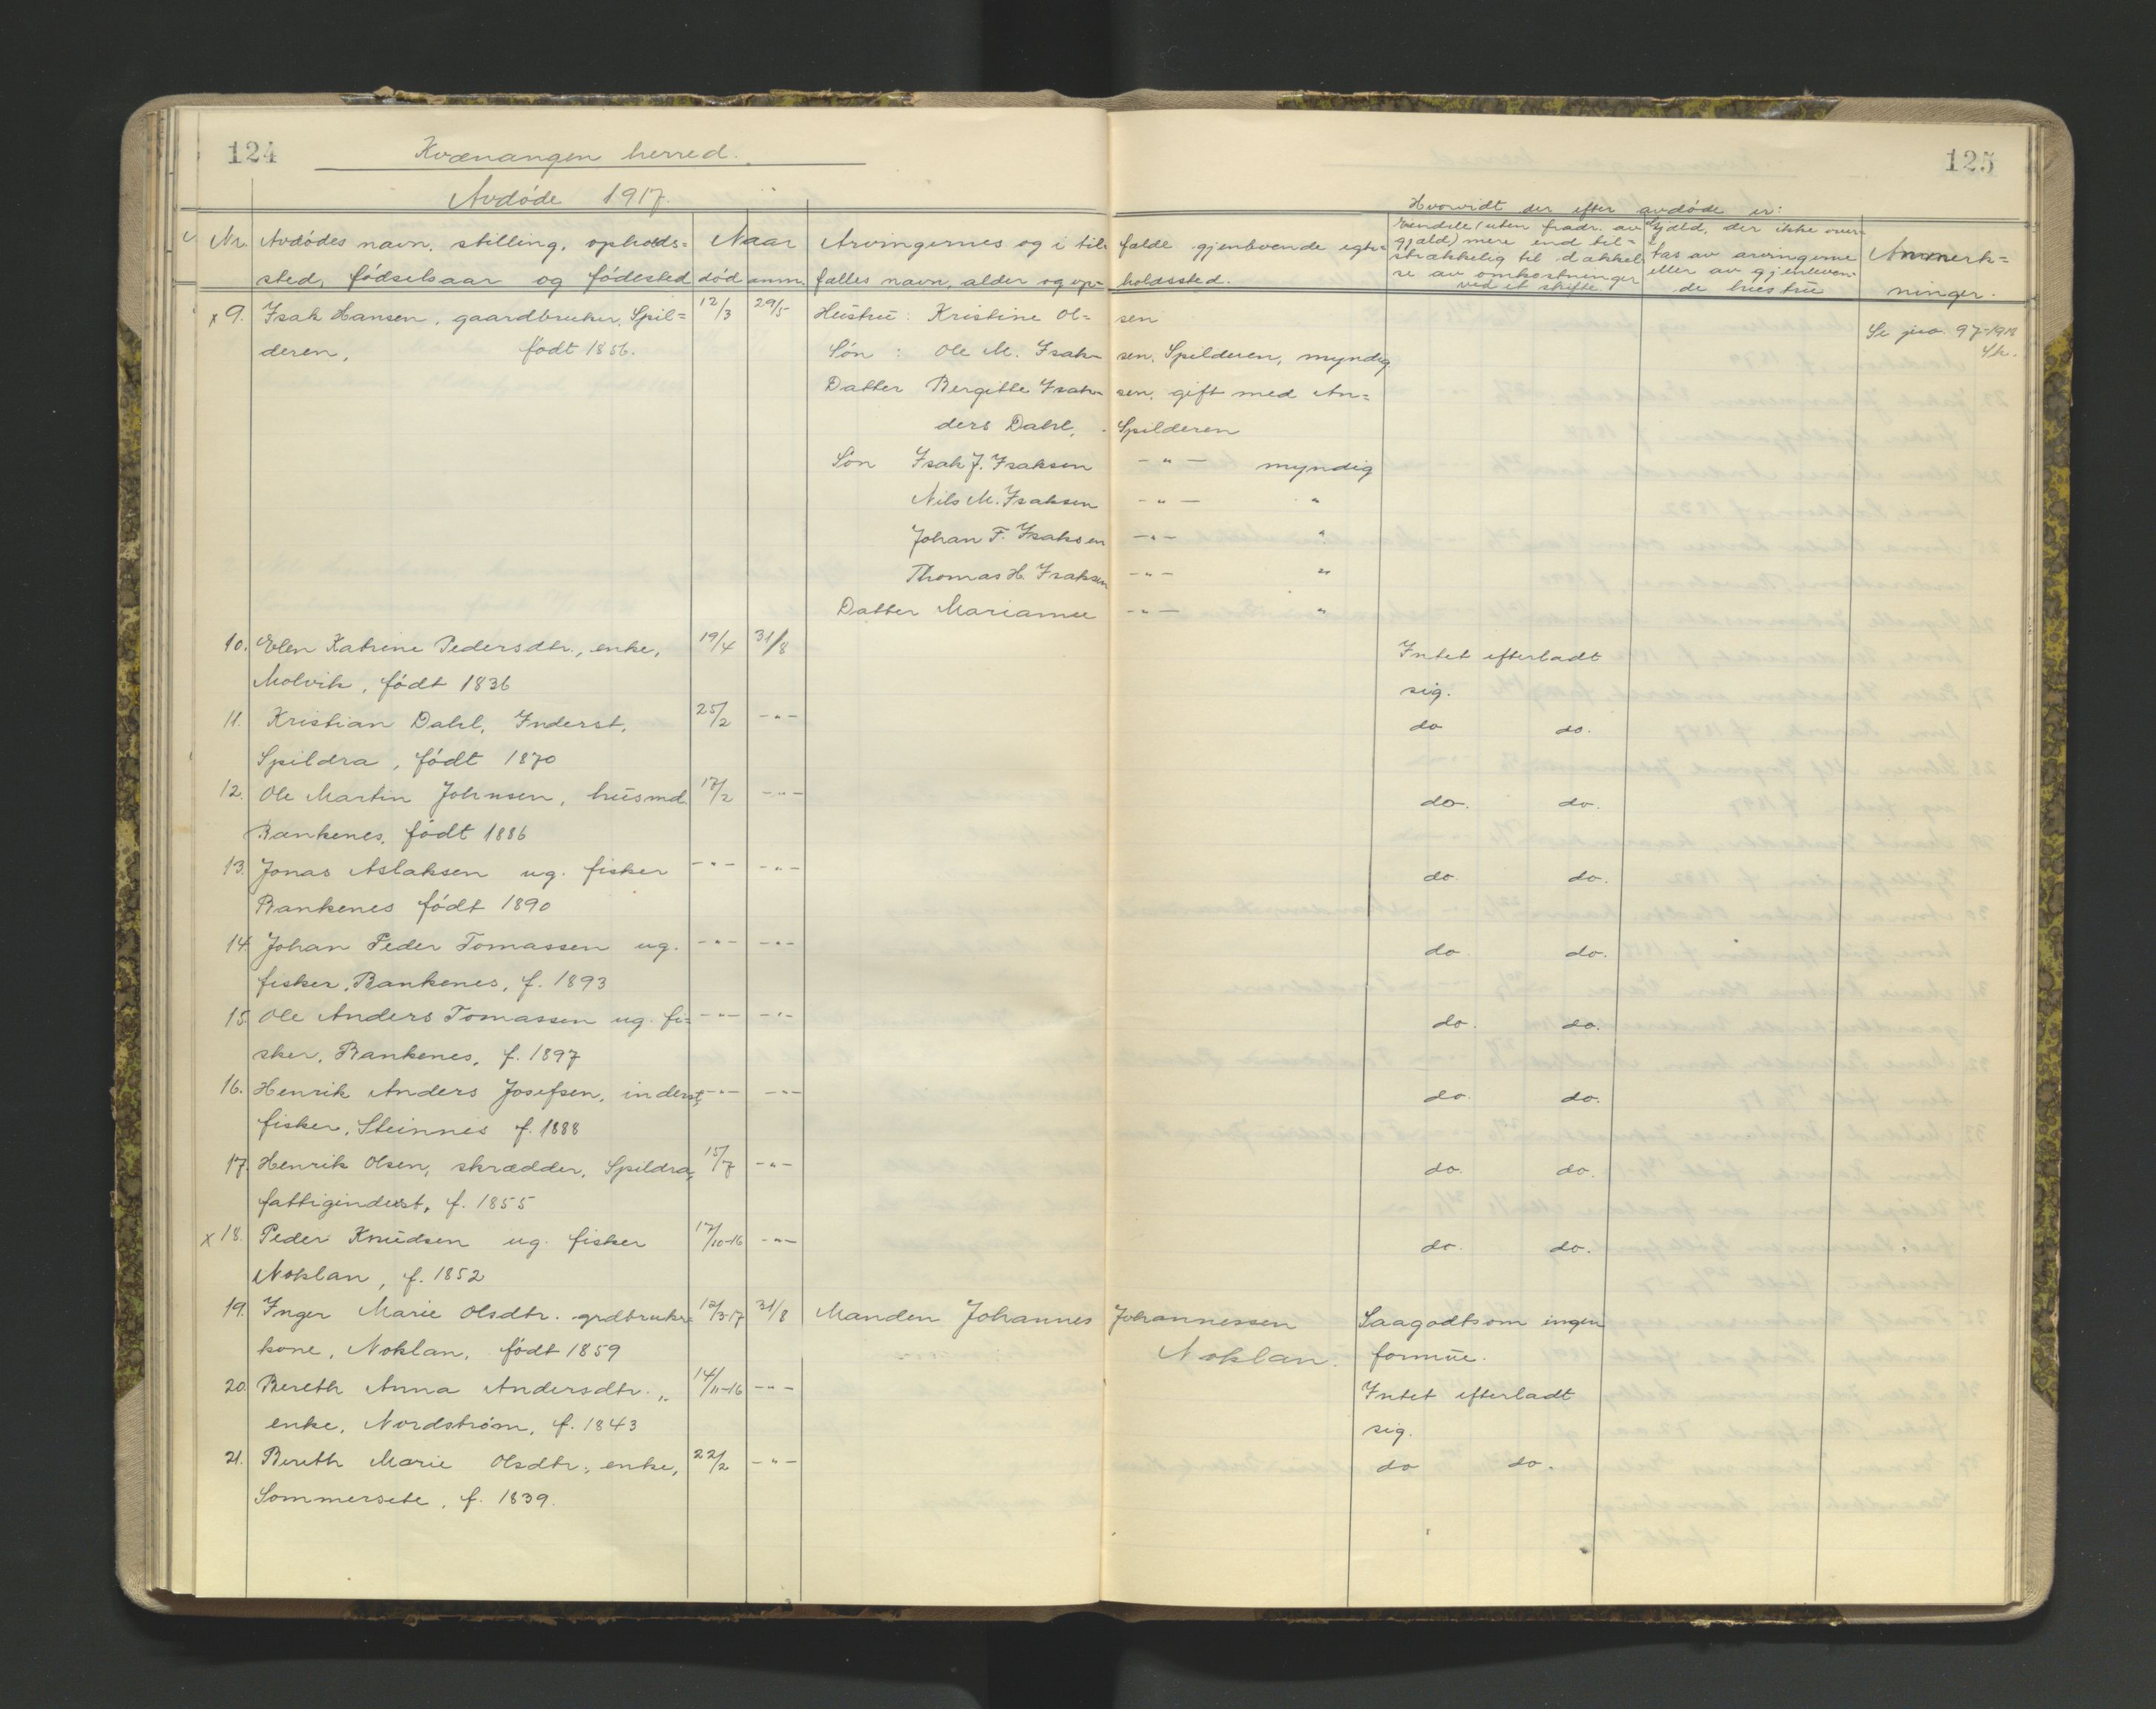 124
Kvænangen herred.
Avdøde 1917.
Nr. Avdødes navn, stilling, opholds= Naar Arvingernes og i til=
sted, fødselsaar og fødested død anm. fælles navn, alder og op=
x 9. Isak Hansen, gaardbruker, Spil= 12/3 29/5 Hustru: Kristine Ol=
deren, født 1856. Søn: Ole M. Isak=
Datter Bergitte Isak=
ders Dahl,
Søn Isak J. Isaksen
Nils M. Isaksen
Johan F. Isaksen
Thomas H. Isaksen
Datter Marianne
10. Elen Katrine Pedersdtr., enke, 19/4 31/8
Molvik, født 1836
11. Kristian Dahl, Inderst, 25/2 -"-
Spildra, født 1870
12. Ole Martin Johnsen, husmd. 17/2 -"-
Rankenes, født 1886
13. Jonas Aslaksen ug. fisker -"- -"-
Rankenes født 1890
14. Johan Peder Tomassen ug. -"- -"-
fisker, Rankenes, f. 1893
15. Ole Anders Tomassen ug. fi= -"- -"-
sker, Rankenes, f. 1897
16. Henrik Anders Josefsen, inderst, -"- -"-
fisker, Steinnes f. 1888
17. Henrik Olsen, skrædder, Spildra, 15/7 -"-
fattiginderst, f. 1855
x 18. Peder Knudsen ug. fisker 17/10-16 -"-
Noklan, f. 1852
19. Inger Marie Olsdtr. grdbruker= 12/3-17 31/8 Manden Johannes
kone, Noklan, født 1859
20. Bereth Anna Andersdtr. „ 14/11-16 -"-
enke, Nordstrøm, f. 1843
21. Bereth Marie Olsdtr., enke, 22/2 -"-
Sommersete, f. 1839.
125
Hvorvidt der efter avdøde er:
falde gjenlevende egte= holdssted.
eiendele (uten fradr. av
gjæld) mere end til=
strækkelig til dækkel=
se av omkostninger
ved et skifte.
Gjæld, der ikke over=
tas av arvingerne
eller av gjenleven=
de hustru
Anmerk=
ninger.
sen
Se jno. 97-1918
Sk.
sen, Spilderen, myndig
sen, gift med An=
Spilderen
-"- myndig
-"- "
-"- "
-"- "
-"- "
Intet efterladt
sig.
do do.
do. do.
do. do.
do do.
do. do.
do. do.
do. do.
do. do.
Johannessen Saagodtsom ingen
Noklan. formue.
Intet efterladt
sig.
do do.